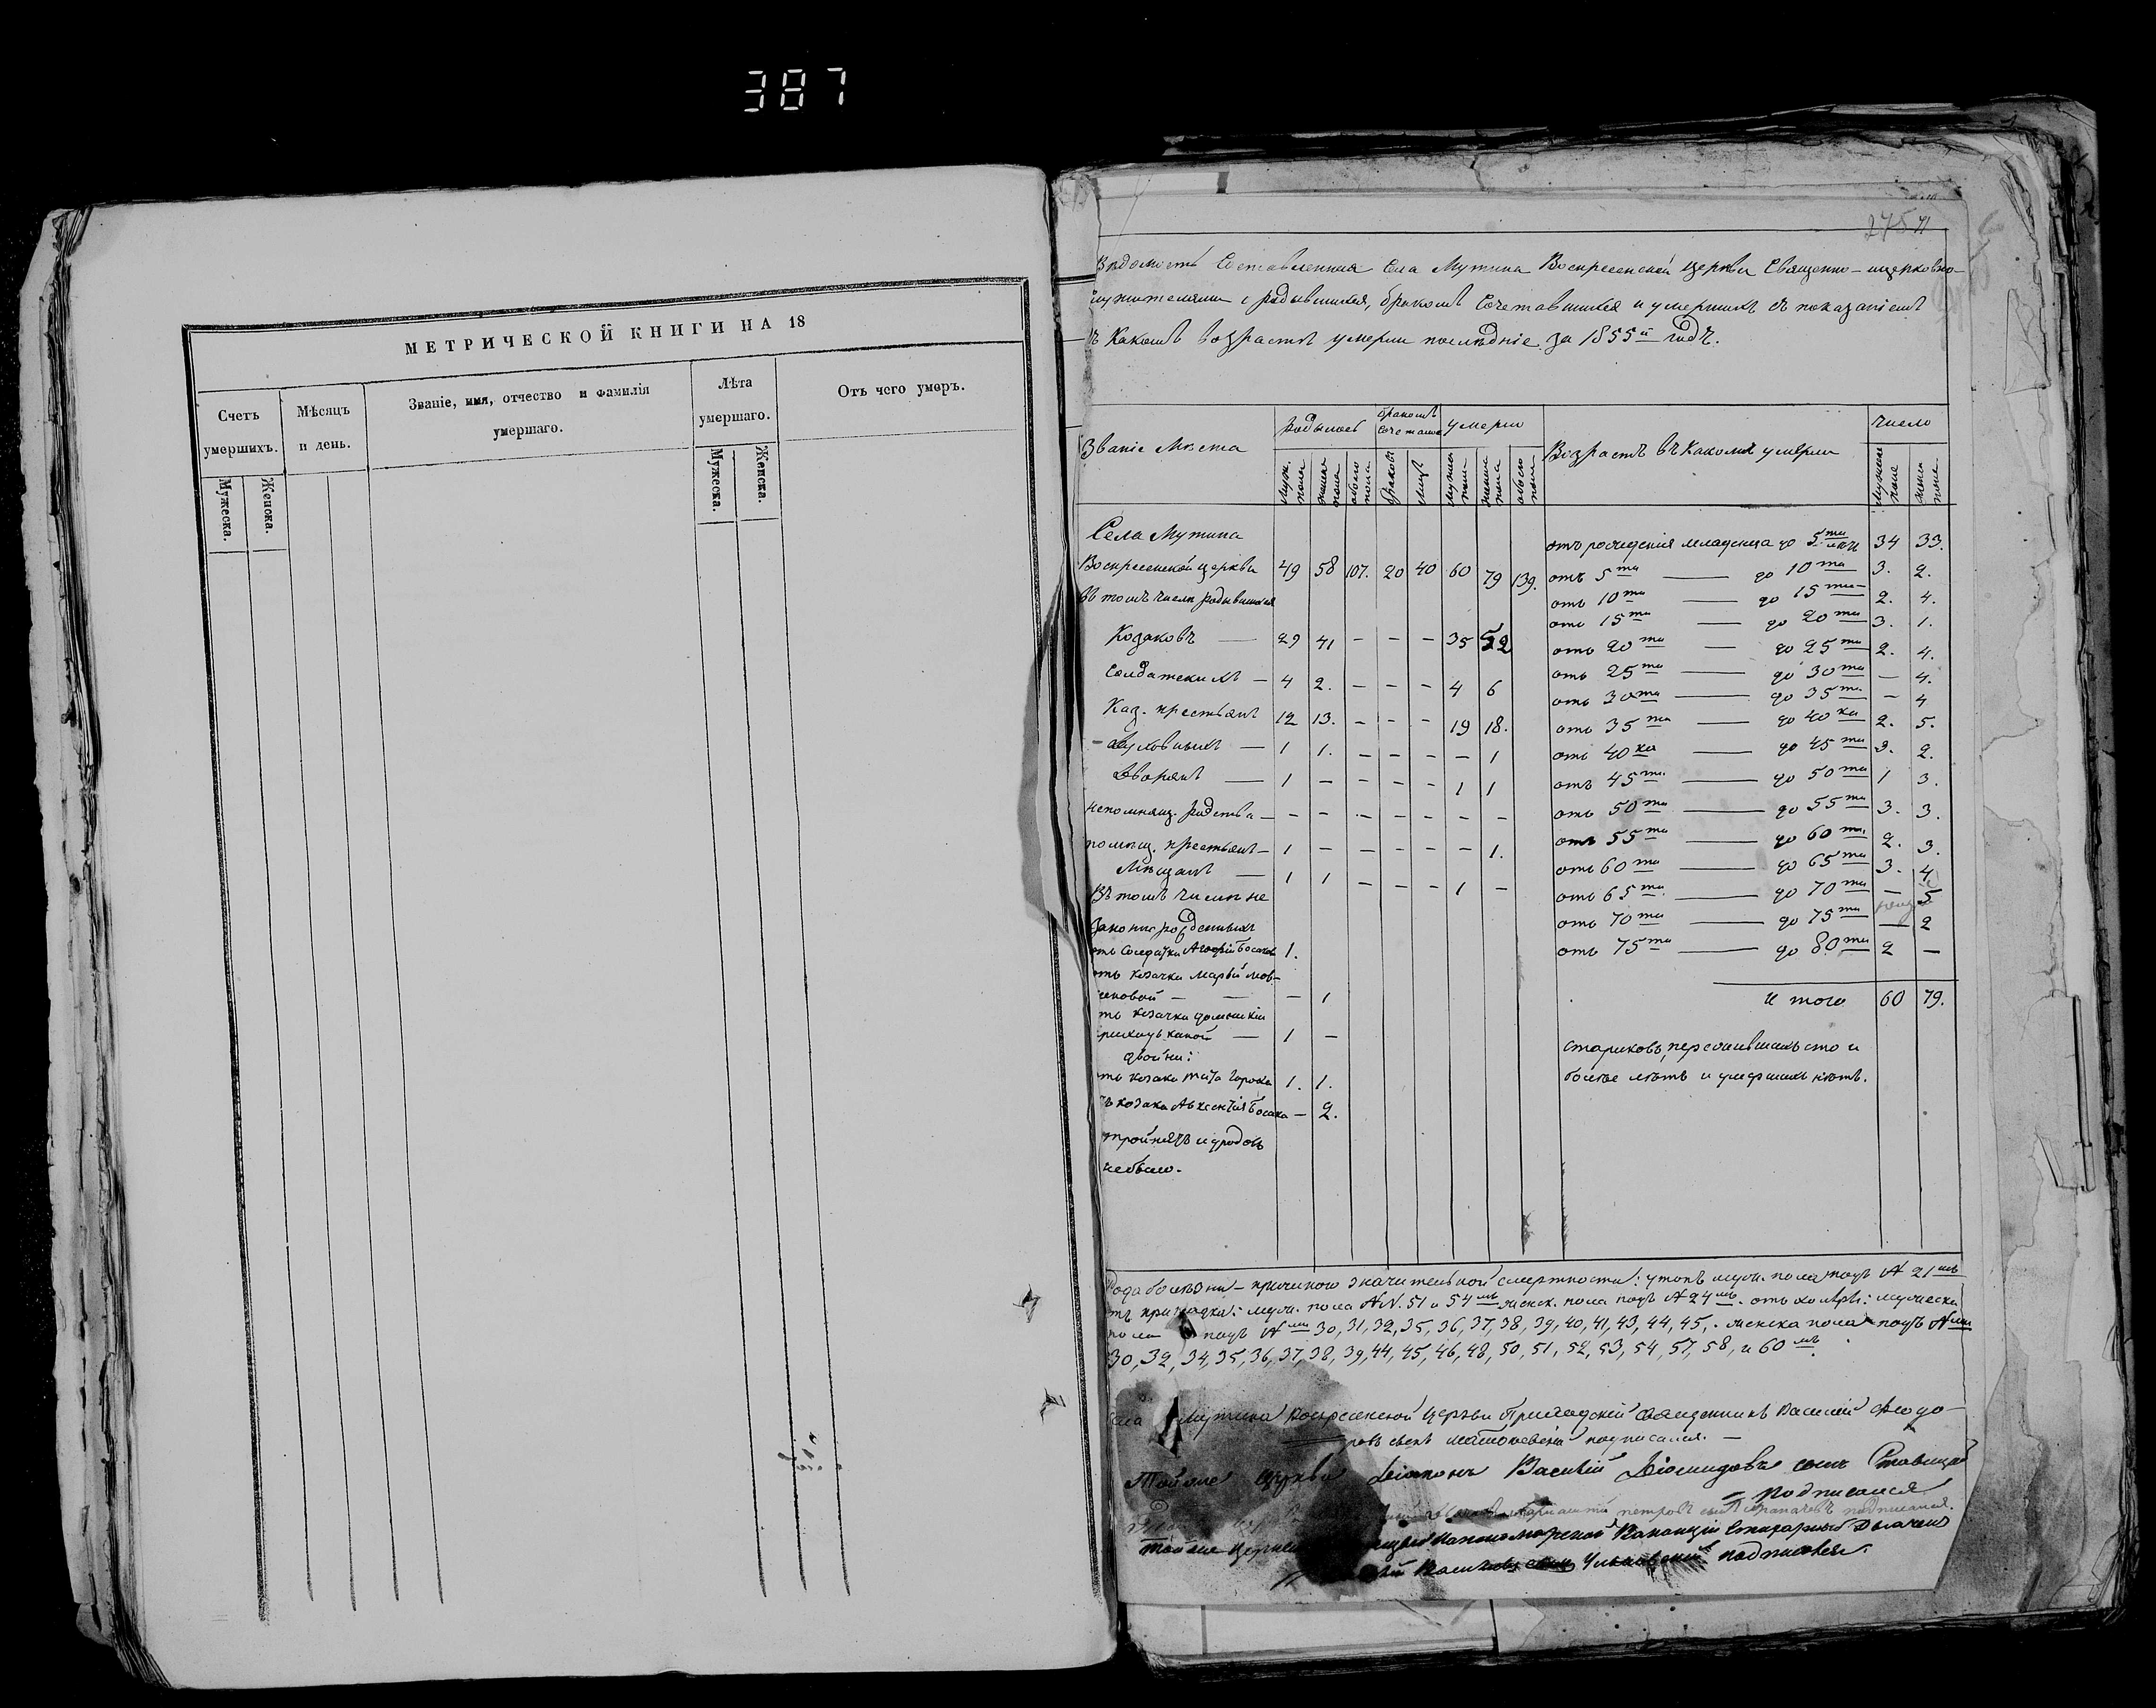 387
МЕТРИЧЕСКОЙ КНИГИ НА 18
Счетъ умершихъ.
Мѣсяцъ и день.
Званіе, имя, отчество и фамилія умершаго.
Лѣта умершаго.
Отъ чего умеръ.
Мужеска.
Женска.
Мужеска.
Женска.
275 71
Вѣдомость Составленная Села Мутина Воскресенской Церкви Священно-ицерковно-
служителями о родившихся, бракомъ Сочетавшихся и умершихъ съ показаніемъ
въ Какомъ возрастѣ умерли послѣдніе за 1855й годъ.
Званіе Мѣста
родилось
бракомъ сочеталось
умерло
Возрастъ въ Какомъ умерли
Число
Муж. пола
женск пола
обоего пола
браковъ
лицъ
мужеск пола
женск пола
обоего пола
Мужеск пола
женск пола
Села Мутина
Воскресенской церкви 49 58 107. 20 40 60 79 139.
Въ томъ числѣ родившихся
Козаковъ — 29 41 - - - 35 52
Солдатскихъ — 4 2. - - - 4 6
Каз. крестьянъ 12 13. - - - 19 18.
духовныхъ — 1 1. - - - - 1
Дворянъ — 1 - - - - 1 1
непомнящ. родства — - - - - - - -
помѣщ. крестьянъ — 1 - - - - - 1.
Мѣщанъ — 1 1 - - - 1 -
Въ томъ числѣ не
законнорожденныхъ
отъ Солдатки 1.
отъ козачки Марфы
— — 1
козачки
— 1 -
двойни:
козака Тита Гороха 1. 1.
козака Авксентія Босака — 2.
тройней и уродовъ
небыло.
отъ рожденія младенца до 5ти лѣтъ 34 33.
отъ 5ти — до 10ти 3. 2.
отъ 10ти — до 15ти 2. 4.
отъ 15ти — до 20ти 3. 1.
отъ 20ти — до 25ти 2. 4.
отъ 25ти — до 30ти — 4.
отъ 30ти — до 35ти — 4
отъ 35ти — до 40ка 2. 5.
отъ 40ка — до 45ти 3. 2.
отъ 45ти — до 50ти 1 3.
отъ 50ти — до 55ти 3. 3.
отъ 55ти — до 60ти 2. 3.
отъ 60ти — до 65ти 3. 4.
отъ 65ти — до 70ти — 5
отъ 70ти — до 75ти — 2
отъ 75ти — до 80ти 2 —
и того 60 79.
стариковъ, пережившихъ сто и
более лѣтъ и умершихъ нѣтъ.
Рода болѣзни – причиною значительной смертности: утопъ муж. пола подъ № 21мъ
отъ припадка: муж. пола №№. 51 и 54мъ женск. пола подъ № 24мъ. отъ холеры: мужеска
пола подъ №ми 30, 31, 32, 35, 36, 37, 38, 39, 40, 41, 43, 44, 45, . женска пола подъ №ми
30, 32, 34, 35, 36, 37, 38, 39, 44, 45, 46, 48, 50, 51, 52, 53, 54, 57, 58, и 60мъ.
Села Мутина Воскресенской Церкви Приходской Священникъ Василій Феодо-
ровъ сынъ подписался. —
Тойже Церкви Діаконъ Василій Діомидовъ сынъ
подписался
петровъ сынъ подписался.
Тойже Церкви пономарской Ваканціи Дьячекъ
сынъ подписался.